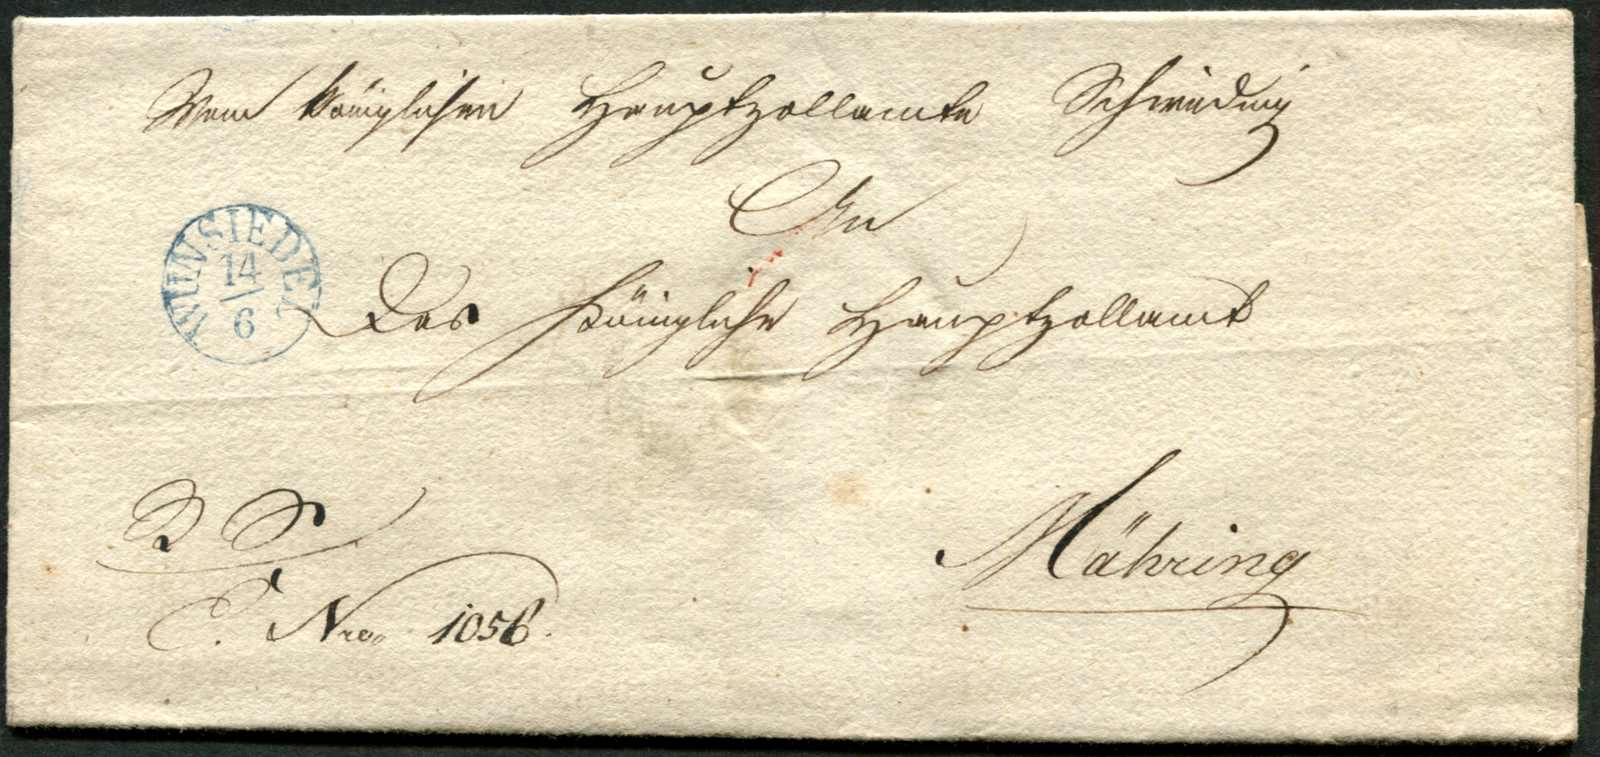 Vom Königlichen Hauptzollamte Schirnding
An
WUNSIEDEL
14
6
Das Königliche Hauptzollamt
R S
E. Nro. 1056.
Mähring